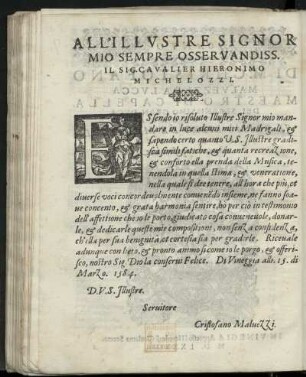 ALL'ILLVSTRE SIGNOR
MIO SEMPRE OSSERVANDISS.
IL SIG. CAVALIER HIERONIMO
MICHELOZZI.
ESsendo io resoluto Illustre Signor mio mandare in luce alcuni miei Madrigali, &
sapendo certo quanto V.S. Illustre gradisca simili fatiche, & quanta recreazione,
& conforto ella prenda della Musica, tenendola in quella stima, & veneratione,
nella quale si dee tenere, all'hora che più, et
diverse voci concordevolmente comendi insieme, ne fanno soave
concento, & grata harmonia sentire, ho per ciò in testimonio
dell'affettione che io le porto, giudicato cosa convenevole, donarle,
& dedicarle queste mie compositioni, non senza considenza,
ch'ella per sua benignità, et cortesia sia per gradirle. Riceuale
adunque con lieto, & pronto animo si come io le porgo, & offerisco,
nostro Sig. Dio la conserui Felice. Di Venegia alli. 15. di
Marzo. 1584.
D.V.S. Illustre.
Seruitore
Cristofano Maluezzi.